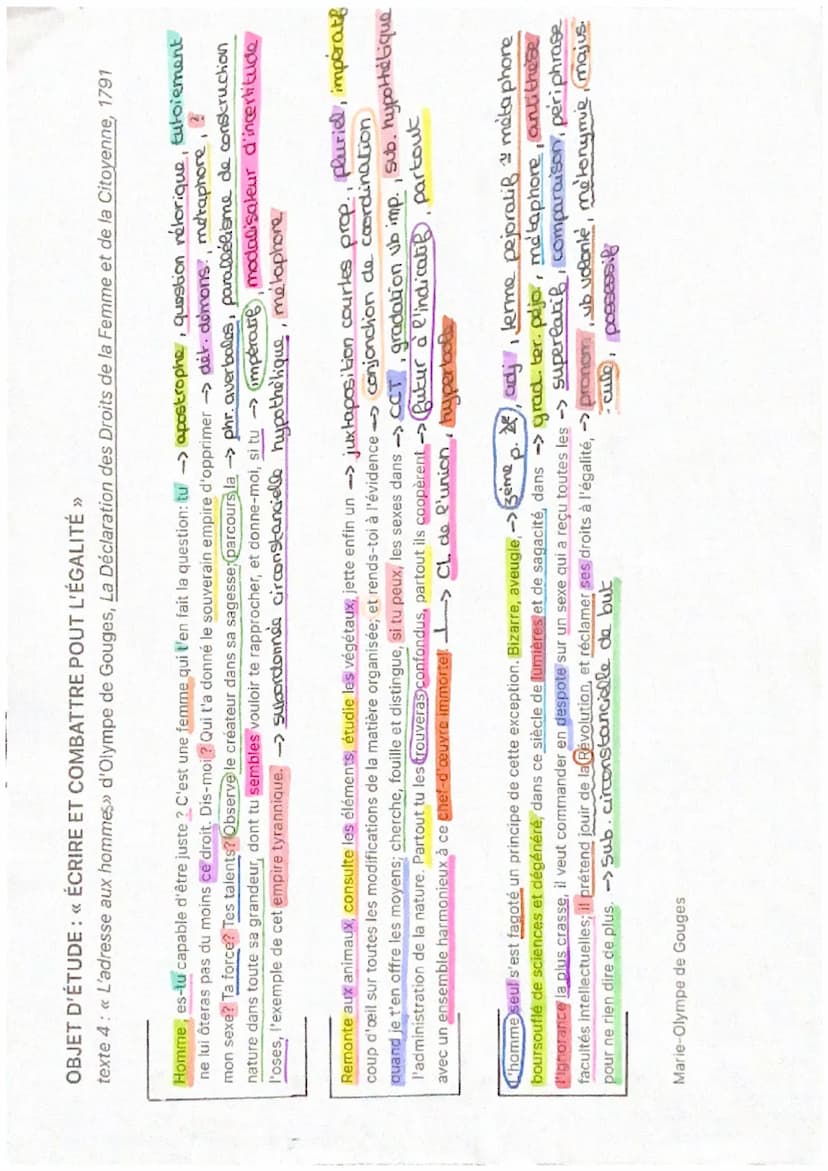 OBJET D'ÉTUDE : « ÉCRIRE ET COMBATTRE POUT L'ÉGALITÉ »
texte 4 : « L'adresse aux hommes» d'Olympe de Gouges, La Déclaration des Droits de la Femme et de la Citoyenne, 1791
Homme, es-tu capable d'être juste ? C'est une femme qui t'en fait la question: tu → apostrophe, question rétorique, tutoiement
ne lui ôteras pas du moins ce droit. Dis-moi? Qui t'a donné le souverain empire d'opprimer → dét. démons., métaphore, ?
mon sexe? Ta force? Tes talents? Observe le créateur dans sa sagesse; parcours la → phr. averbales, parallélisme de construction
nature dans toute sa grandeur, dont tu sembles vouloir te rapprocher, et donne-moi, si tu → impératif, modalisateur d'incertitude
l'oses, l'exemple de cet empire tyrannique. → subordonnée circonstancielle hypothétique, métaphore
Remonte aux animaux, consulte les éléments, étudie les végétaux, jette enfin un → juxtaposition courtes prop., pluriel, impératif
coup d'œil sur toutes les modifications de la matière organisée; et rends-toi à l'évidence → conjonction de coordination
quand je t'en offre les moyens; cherche, fouille et distingue, si tu peux, les sexes dans → CCT, gradation vb imp., sub. hypothétique
l'administration de la nature. Partout tu les trouveras confondus, partout ils coopèrent → futur à l'indicatif, partout
avec un ensemble harmonieux à ce chef-d'œuvre immortel. → CL de l'union, hyperbole
L'homme seul s'est fagoté un principe de cette exception. Bizarre, aveugle, → 3ème p., adj, terme péjoratif métaphore
boursouflé de sciences et dégénéré, dans ce siècle de lumières et de sagacité, dans → grad. ter. péjo, métaphore, antithèse
l'ignorance la plus crasse, il veut commander en despote sur un sexe qui a reçu toutes les → superlatif, comparaison, périphrase
facultés intellectuelles; il prétend jouir de la Révolution, et réclamer ses droits à l'égalité, → pronom, vb volonté, métonymie, majus.
pour ne rien dire de plus. → sub. circonstancielle de but possessif
Marie-Olympe de Gouges